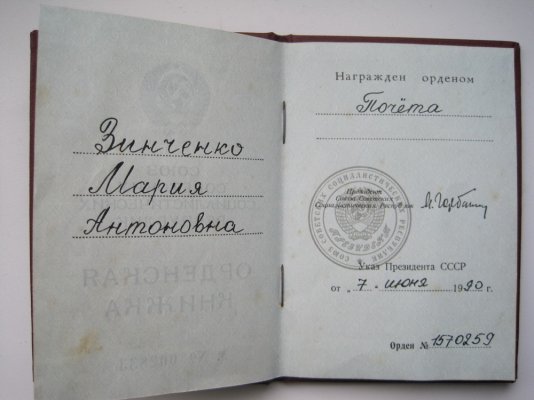 Зинченко
Мария
Антоновна
ОРДЕНСКАЯ
КНИЖКА
Награжден орденом
Почёта
Президент
Союза Советских
Социалистических Республик
М. Горбачев
Указ Президента СССР
от „ 7 " июня 1990 г.
Орден № 1570259